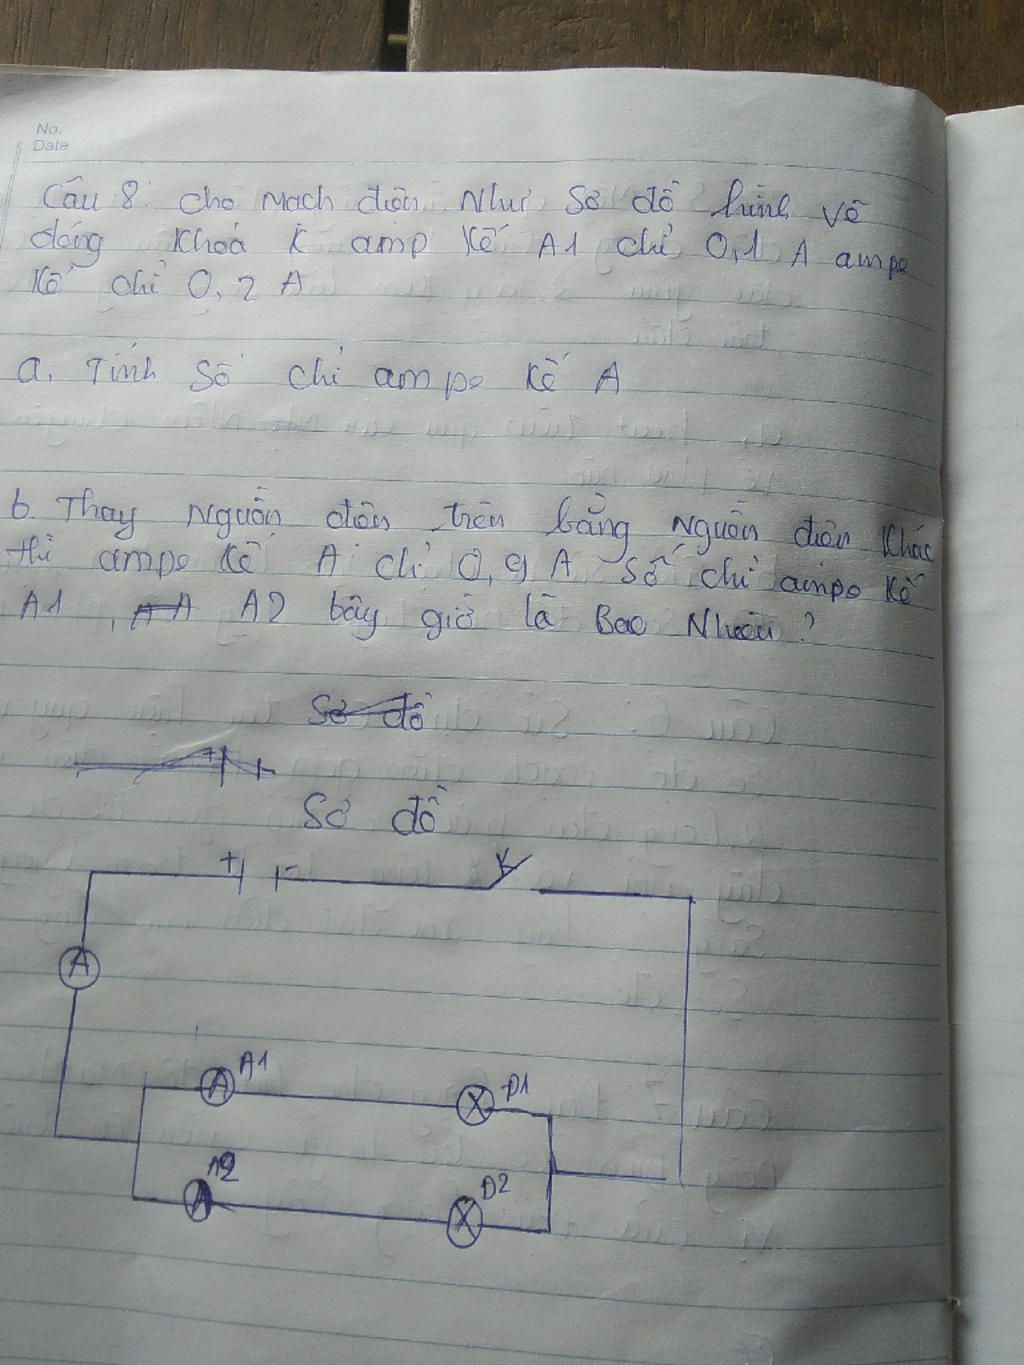 No.
Date
Câu 8: cho mạch điện Như Sơ đồ hình vẽ
đóng khoá k amp kế A1 chỉ 0,1 A ampe
kế chỉ 0,2 A
a. Tính Số chỉ ampe kế A
b Thay Nguồn điện trên bằng Nguồn điện khác
thì ampe kế A chỉ 0,9 A Số chỉ ampe kế
A1, A2 bây giờ là Bao Nhiêu?
Sơ đồ
Sơ đồ
+ - K
A
A A1 X Đ1
A A2 X Đ2